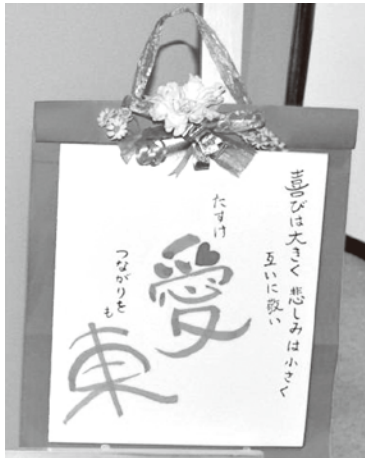 喜びは大きく 悲しみは小さく
互いに敬い
たすけ
愛
つながりを
も
東